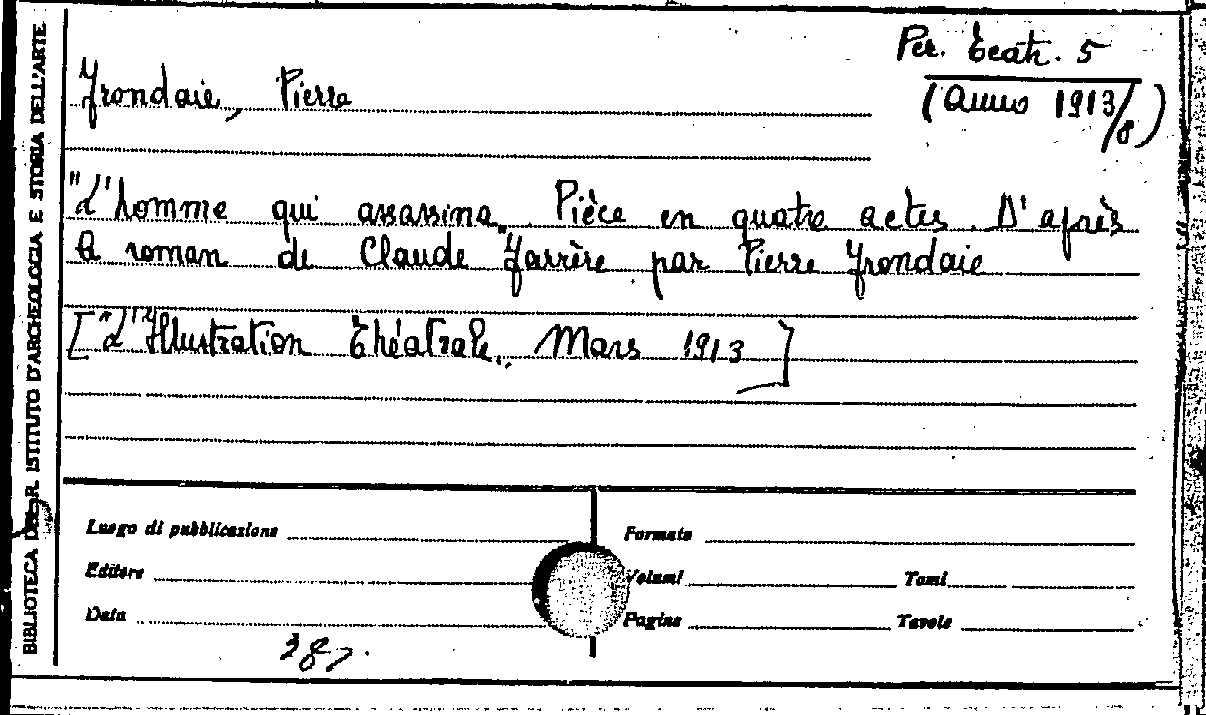 Per. Teatr. 5
(Anno 1913/8)
Frondaie, Pierre
"L'homme qui assassina". Pièce en quatre actes. D'après
le roman de Claude Farrère par Pierre Frondaie
["L'Illustration Théatrale", Mars 1913]
Luogo di pubblicazione
Formato
Editore
Volumi
Tomi
Data
Pagine
Tavole
387.
BIBLIOTECA DEL R. ISTITUTO D'ARCHEOLOGIA E STORIA DELL'ARTE